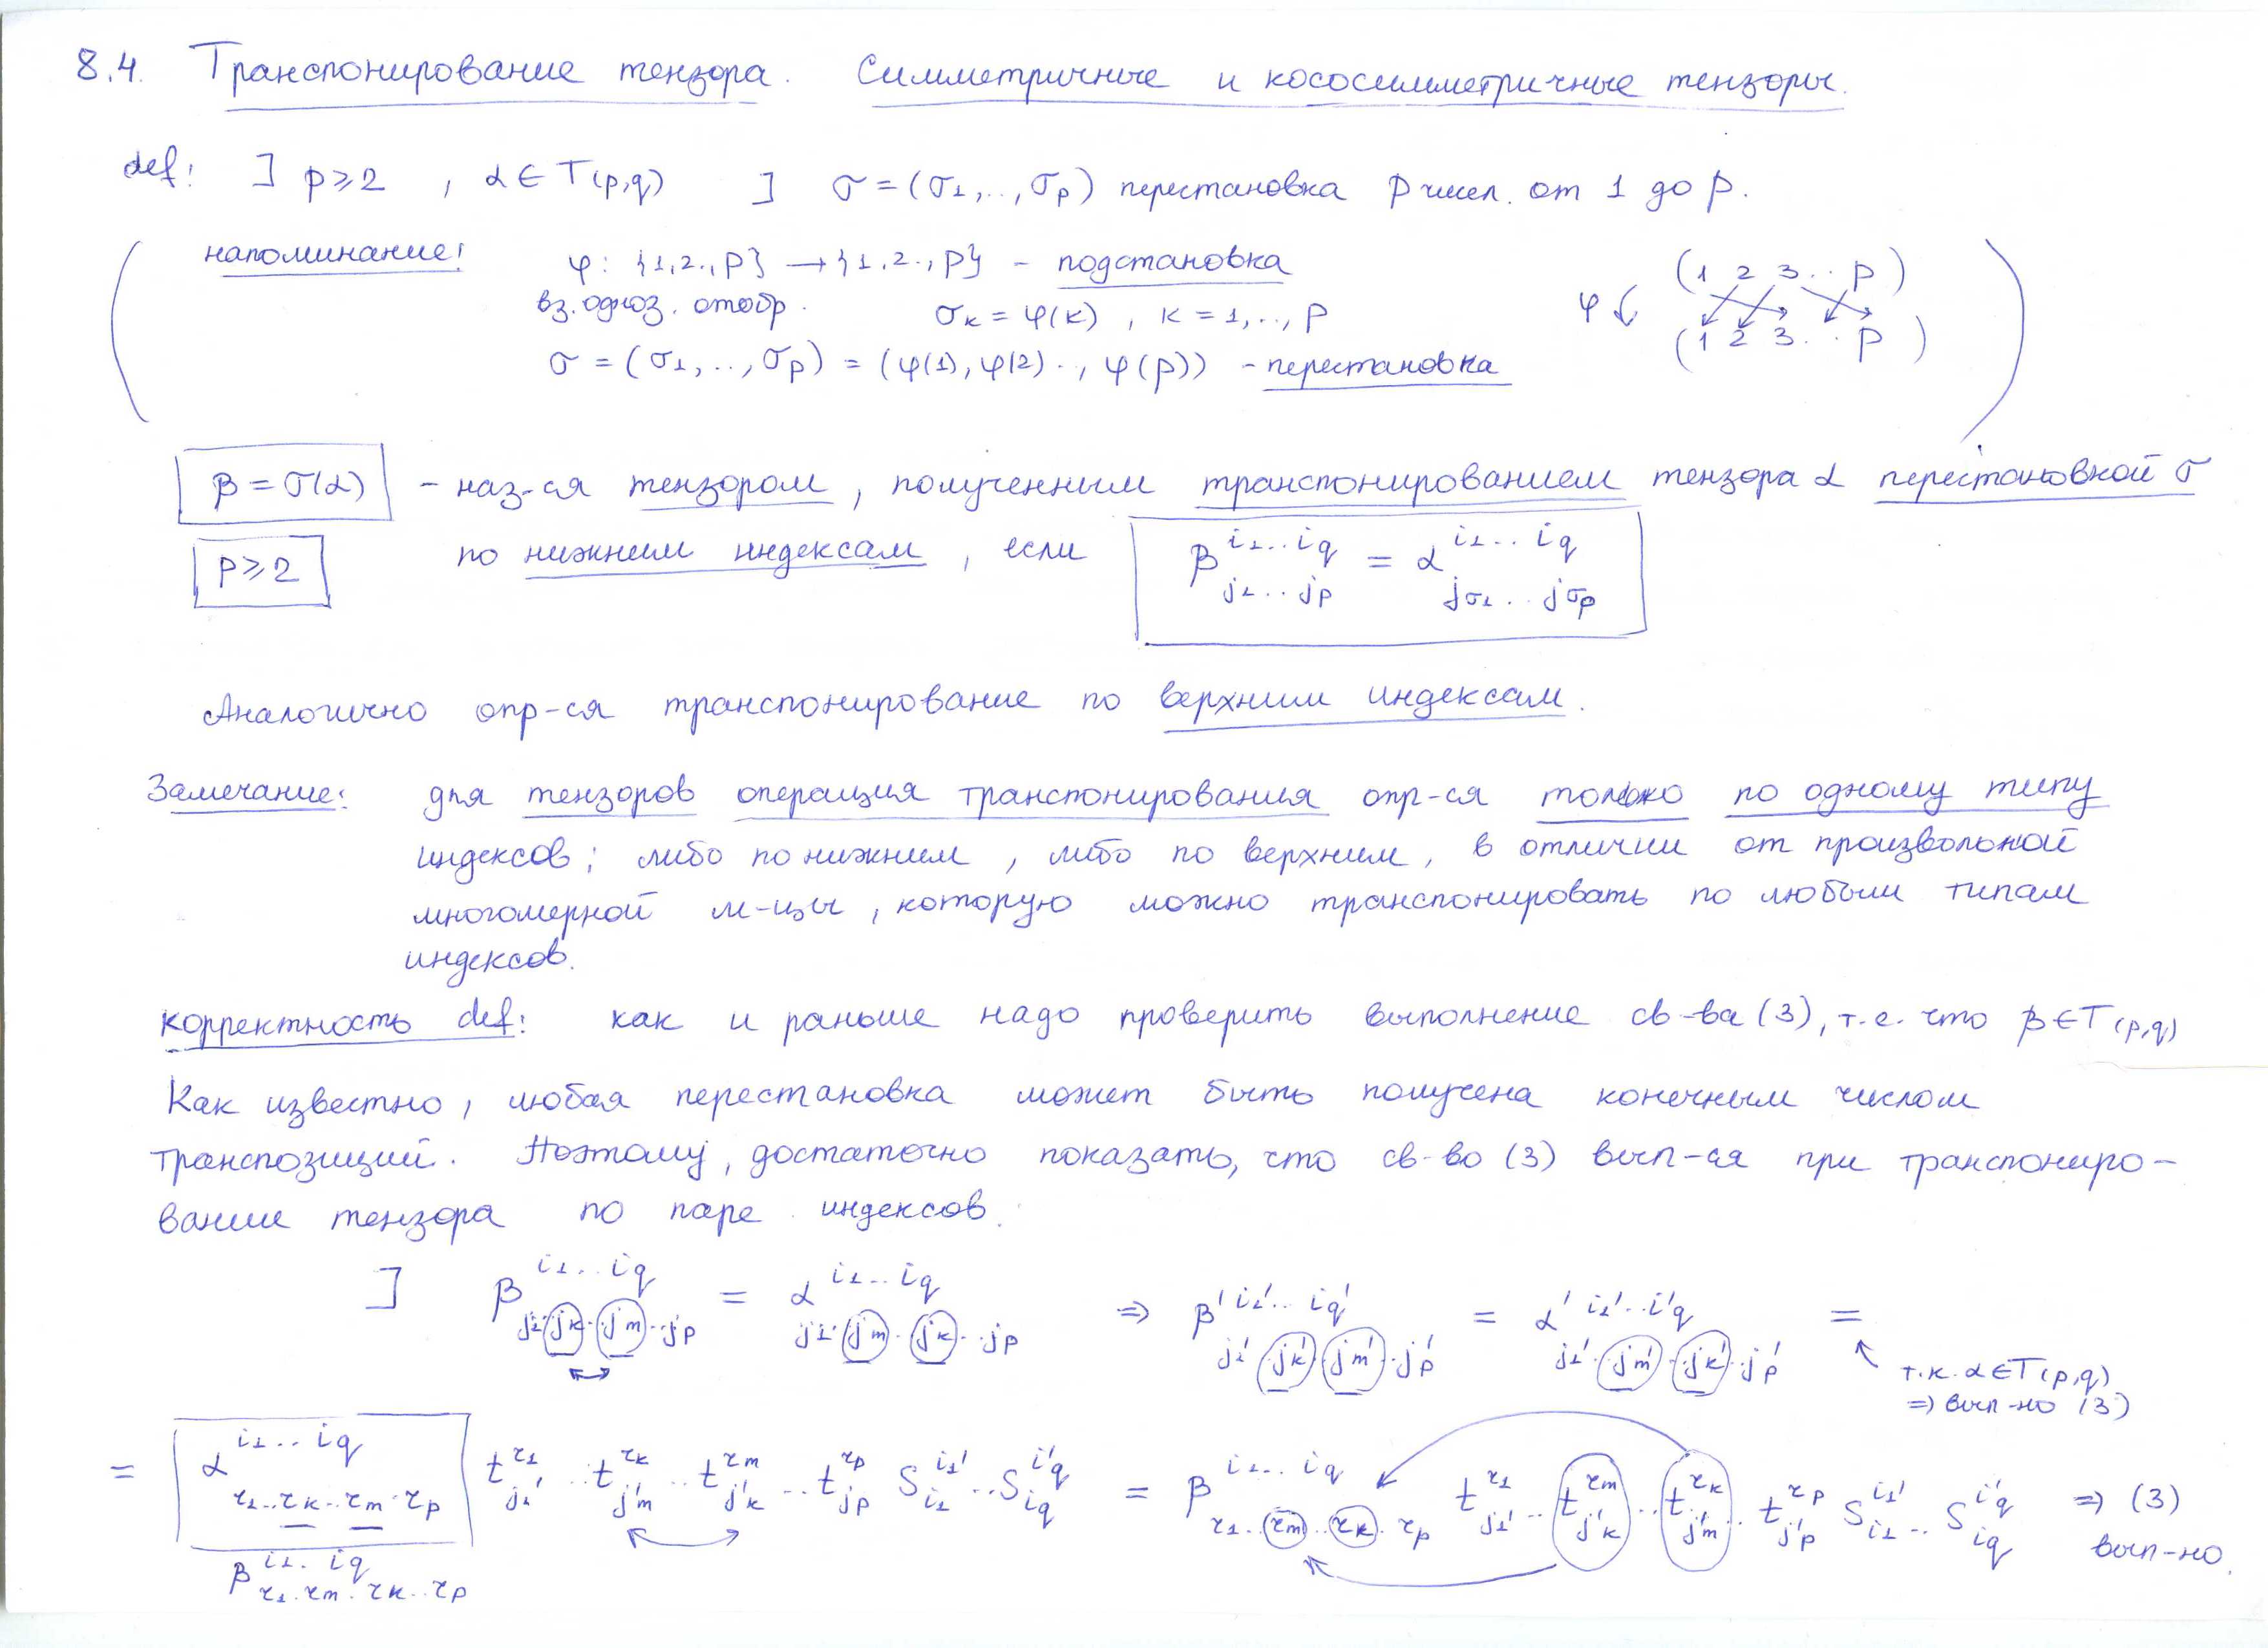 8.4. Транспонирование тензора. Симметричные и кососимметричные тензоры.
def: ] p≥2 , α∈T(p,q) ] σ=(σ₁,..,σp) перестановка p чисел. от 1 до p.
напоминание: φ: {1,2..,p} → {1,2..,p} - подстановка
вз.одноз. отобр. σк = φ(к) , к = 1,..,p
σ = (σ₁,..,σp) = (φ(1), φ(2).., φ(p)) - перестановка
φ (1 2 3.. p)
(1 2 3.. p)
β = σ(α) - наз-ся тензором, полученным транспонированием тензора α перестановкой σ
p≥2 по нижним индексам, если β^{i₁..iq}_{j₁..jp} = α^{i₁..iq}_{jσ₁..jσp}
Аналогично опр-ся транспонирование по верхним индексам.
Замечание: для тензоров операция транспонирования опр-ся только по одному типу
индексов; либо по нижним, либо по верхним, в отличии от произвольной
многомерной м-цы, которую можно транспонировать по любым типам
индексов.
корректность def: как и раньше надо проверить выполнение св-ва (3), т.е. что β∈T(p,q)
Как известно, любая перестановка может быть получена конечным числом
транспозиций. Поэтому, достаточно показать, что св-во (3) вып-ся при транспониро-
вание тензора по паре индексов.
] β^{i₁..iq}_{j₁..jк..jm..jp} = α^{i₁..iq}_{j₁..jm..jк..jp} ⇒ β'^{i₁'..iq'}_{j₁'..jк'..jm'..jp'} = α'^{i₁'..i'q}_{j₁'..jm'..jк'..jp'} =
т.к. α∈T(p,q)
⇒ вып-но (3)
= α^{i₁..iq}_{r₁..rк..rm..rp} t^{r₁}_{j₁'}..t^{rк}_{j'm}..t^{rm}_{j'к}..t^{rp}_{jp} S^{i₁'}_{i₁}..S^{i'q}_{iq} = β^{i₁..iq}_{r₁..rm..rк..rp} t^{r₁}_{j₁'}..t^{rm}_{j'к}..t^{rк}_{j'm}..t^{rp}_{j'p} S^{i₁'}_{i₁}..S^{i'q}_{iq} ⇒ (3)
вып-но.
β^{i₁..iq}_{r₁..rm..rк..rp}